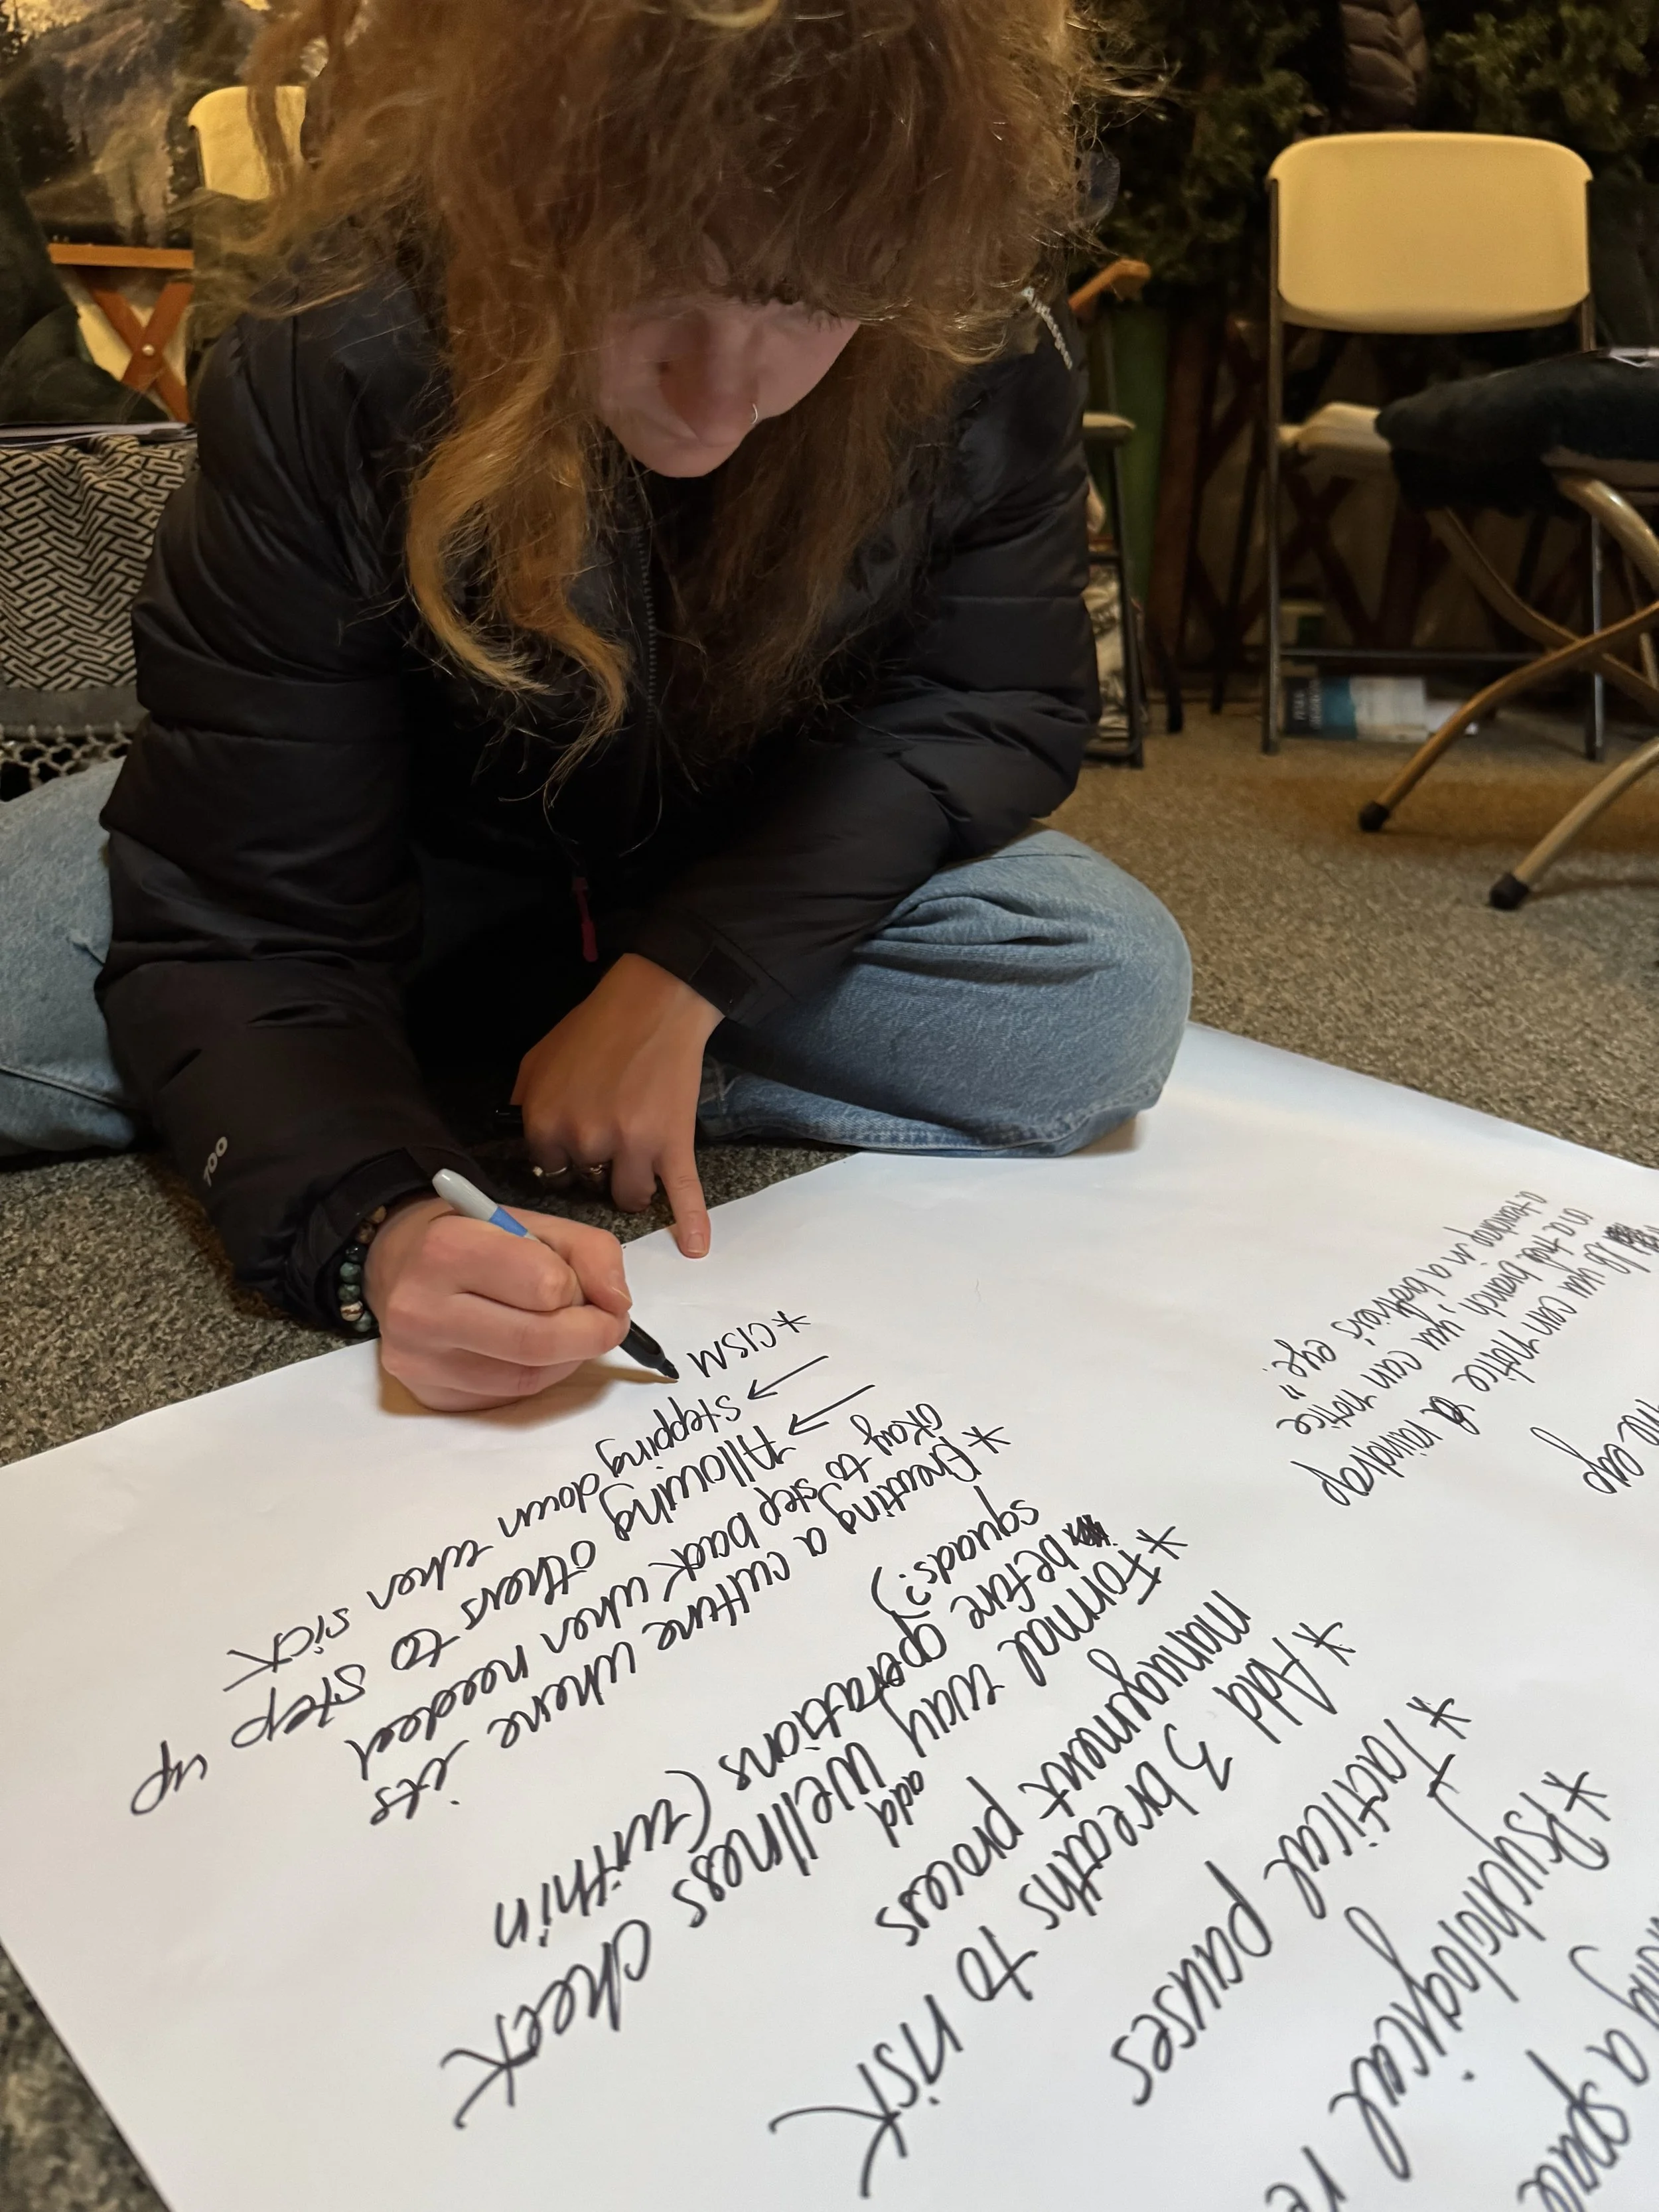 a space
* Psychological
* Tactical pauses
* Add 3 breaths to risk
management process
add
* Formal way wellness check
before operations (within
squads?)
* Creating a culture where its
okay to step back when needed
→ Allowing others to step up
→ stepping down when sick
* CISM
cup
you can notice a raindrop
on a tree branch, you can notice
a teardrop in a brother's eye."
700